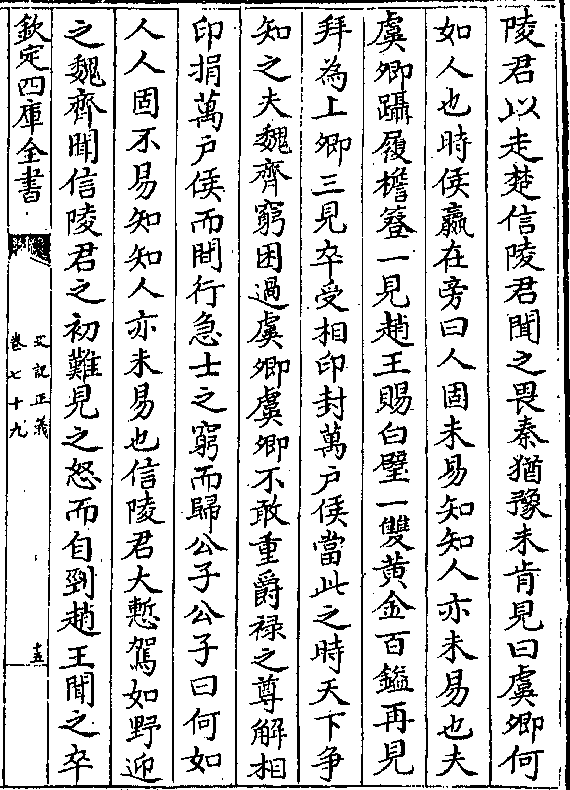 陵君以走楚信陵君聞之畏秦猶豫未肯見曰虞卿何
如人也時侯嬴在旁曰人固未易知知人亦未易也夫
虞卿躡履檐簦一見趙王賜白璧一雙黃金百鎰再見
拜為上卿三見卒受相印封萬户侯當此之時天下争
知之夫魏齊窮困過虞卿虞卿不敢重爵禄之尊解相
印捐萬户侯而間行急士之窮而歸公子公子曰何如
人人固不易知知人亦未易也信陵君大慙駕如野迎
之魏齊聞信陵君之初難見之怒而自剄趙王聞之卒
欽定四庫全書
史記正義
卷七十九
十五